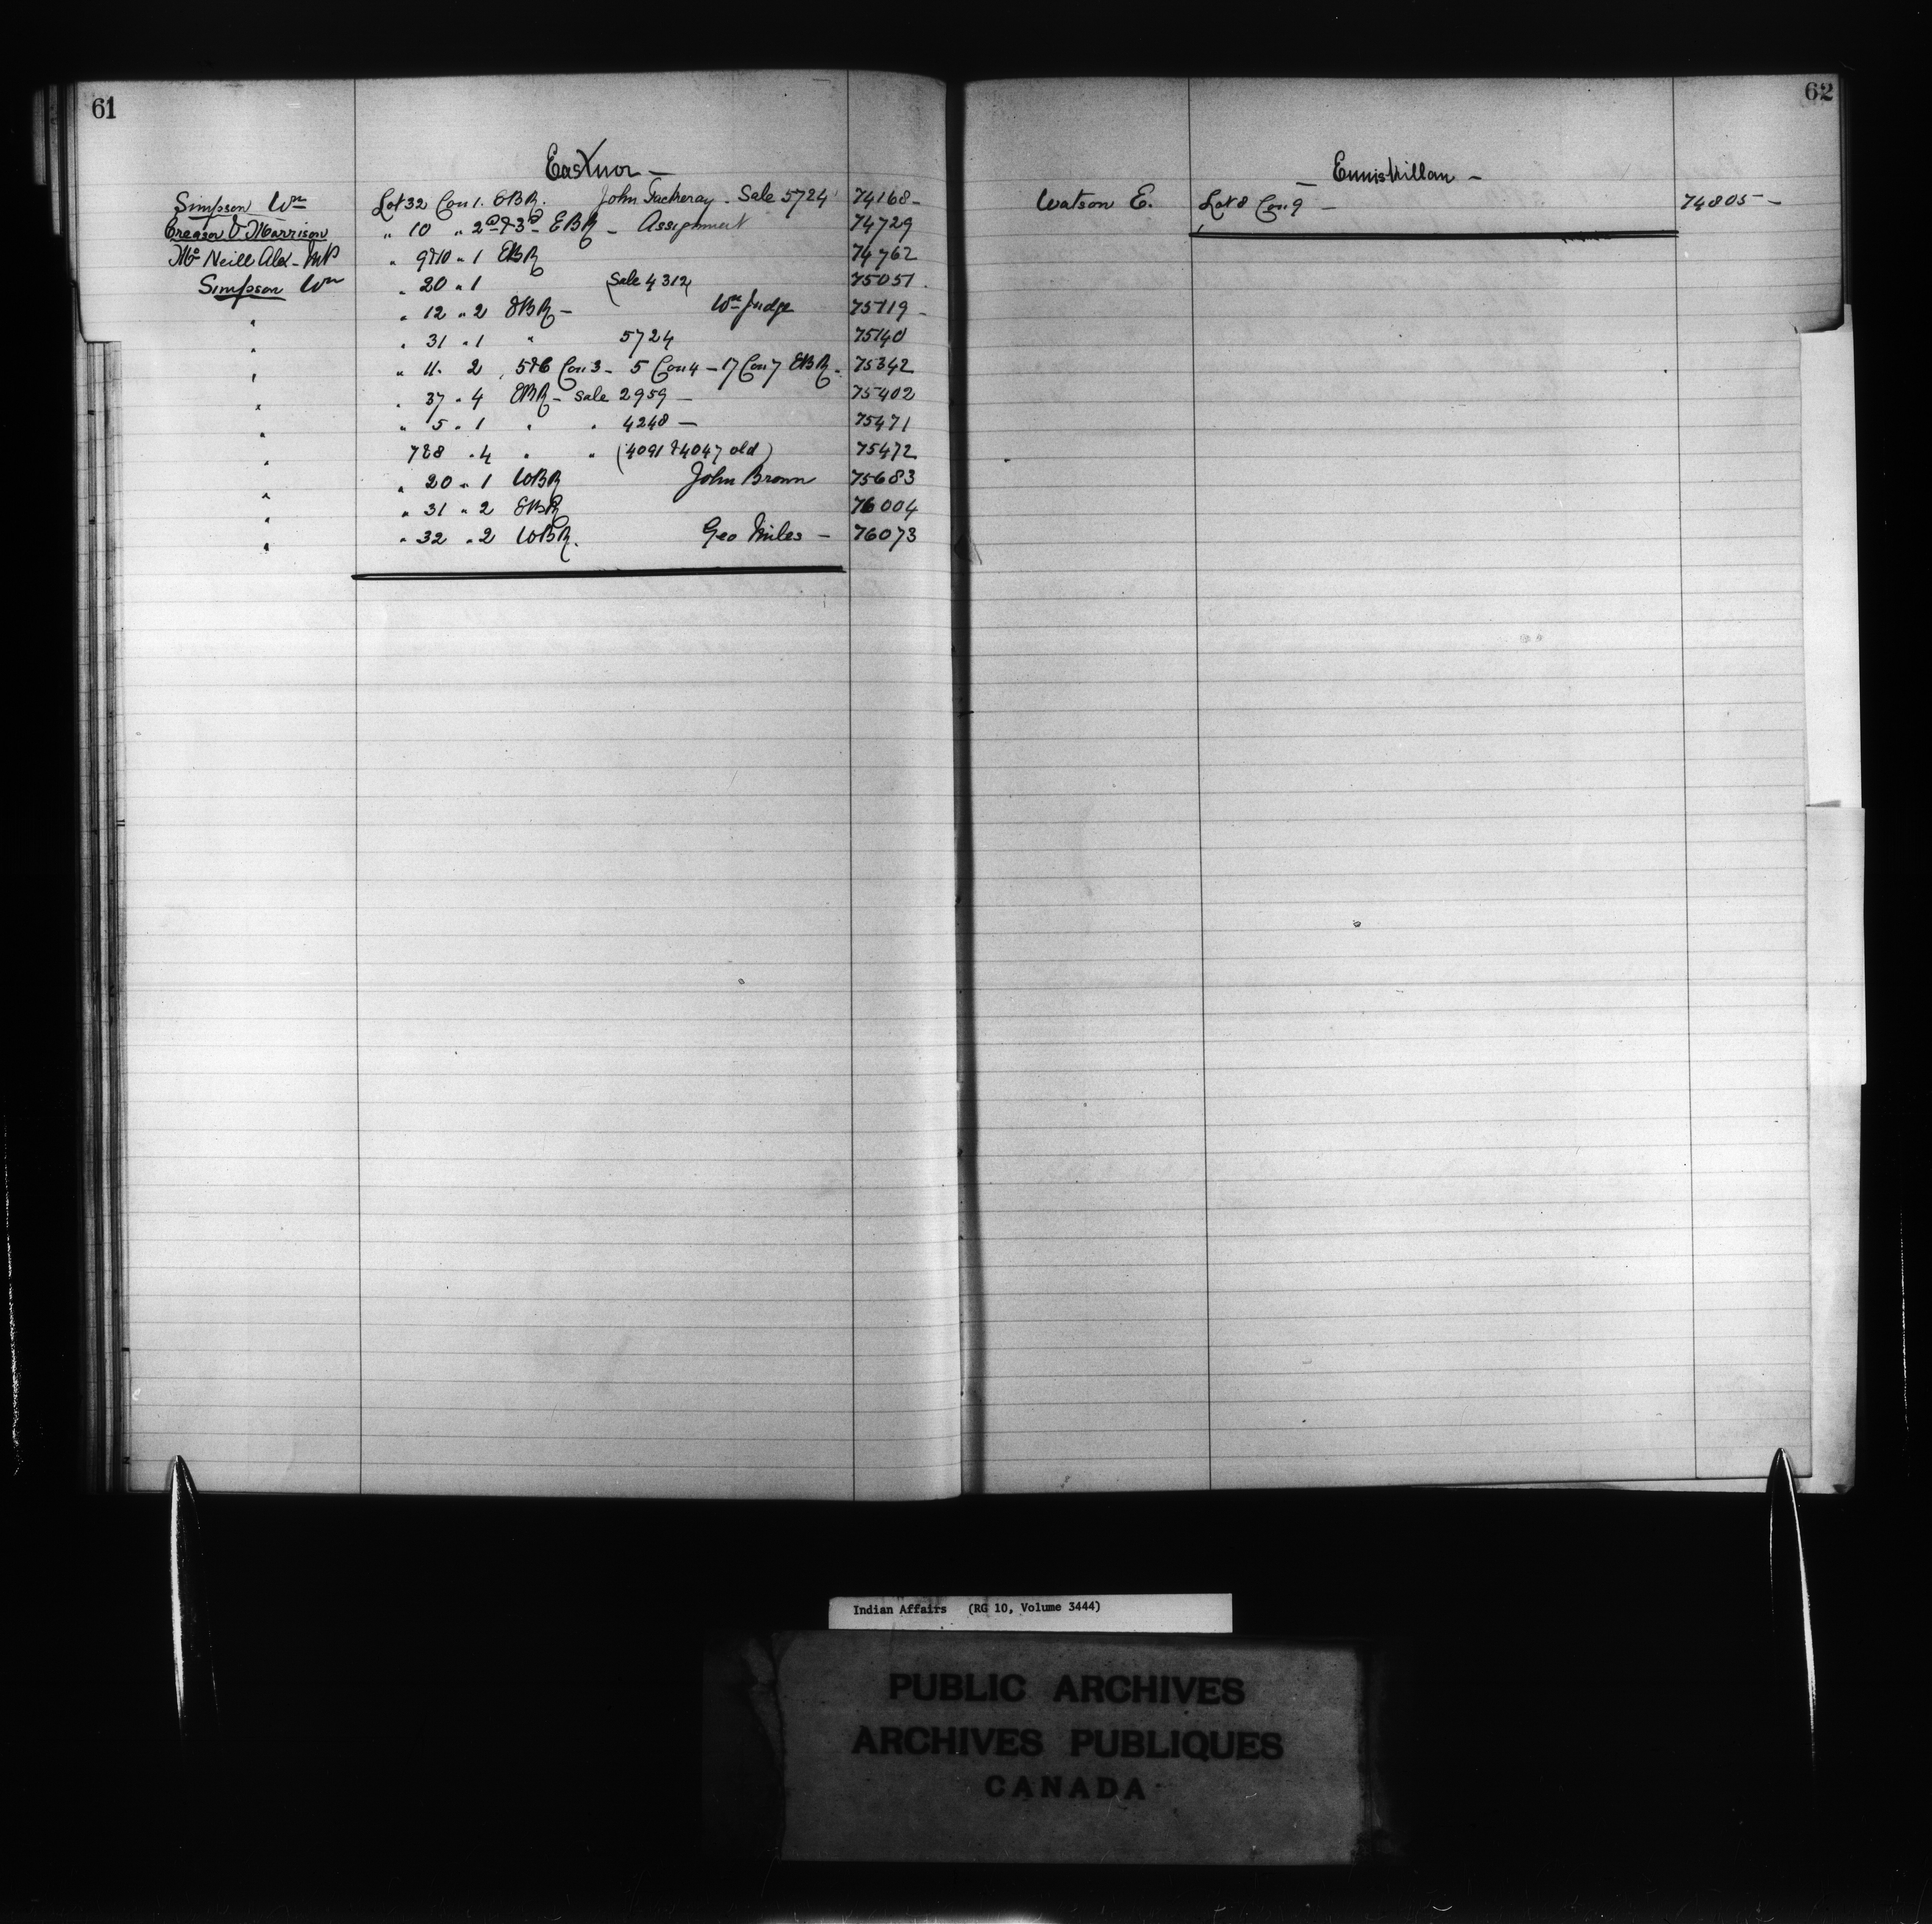 61
Eastnor —
Simpson Wm Lot 32 Con 1. EBR. John Tackeray - Sale 5724 74168 -
Creasor & Morrison " 10 " 2nd & 3rd EBR - Assignment 74729
McNeill Alex - MP " 9 & 10 " 1 EBR 74762
Simpson Wm " 20 " 1 (Sale 4312) 75051 .
" " 12 " 2 EBR - Wm Judge 75119 -
" " 31 " 1 " 5724 75140
" " 11 . 2 , 5 & 6 Con 3 - 5 Con 4 - 17 Con 7 EBR - 75342
" " 37 " 4 EBR - Sale 2959 — 75402
" " 5 " 1 " " 4248 — 75471
" 7 & 8 " 4 " " (4091 & 4047 old) 75472
" " 20 " 1 WBR John Brown 75683
" " 31 " 2 EBR 76004
" " 32 " 2 WBR. Geo Miles — 76073
62
Enniskillan —
Watson E. Lot 8 Con 9 — 74805 —
Indian Affairs (RG 10, Volume 3444)
PUBLIC ARCHIVES
ARCHIVES PUBLIQUES
CANADA